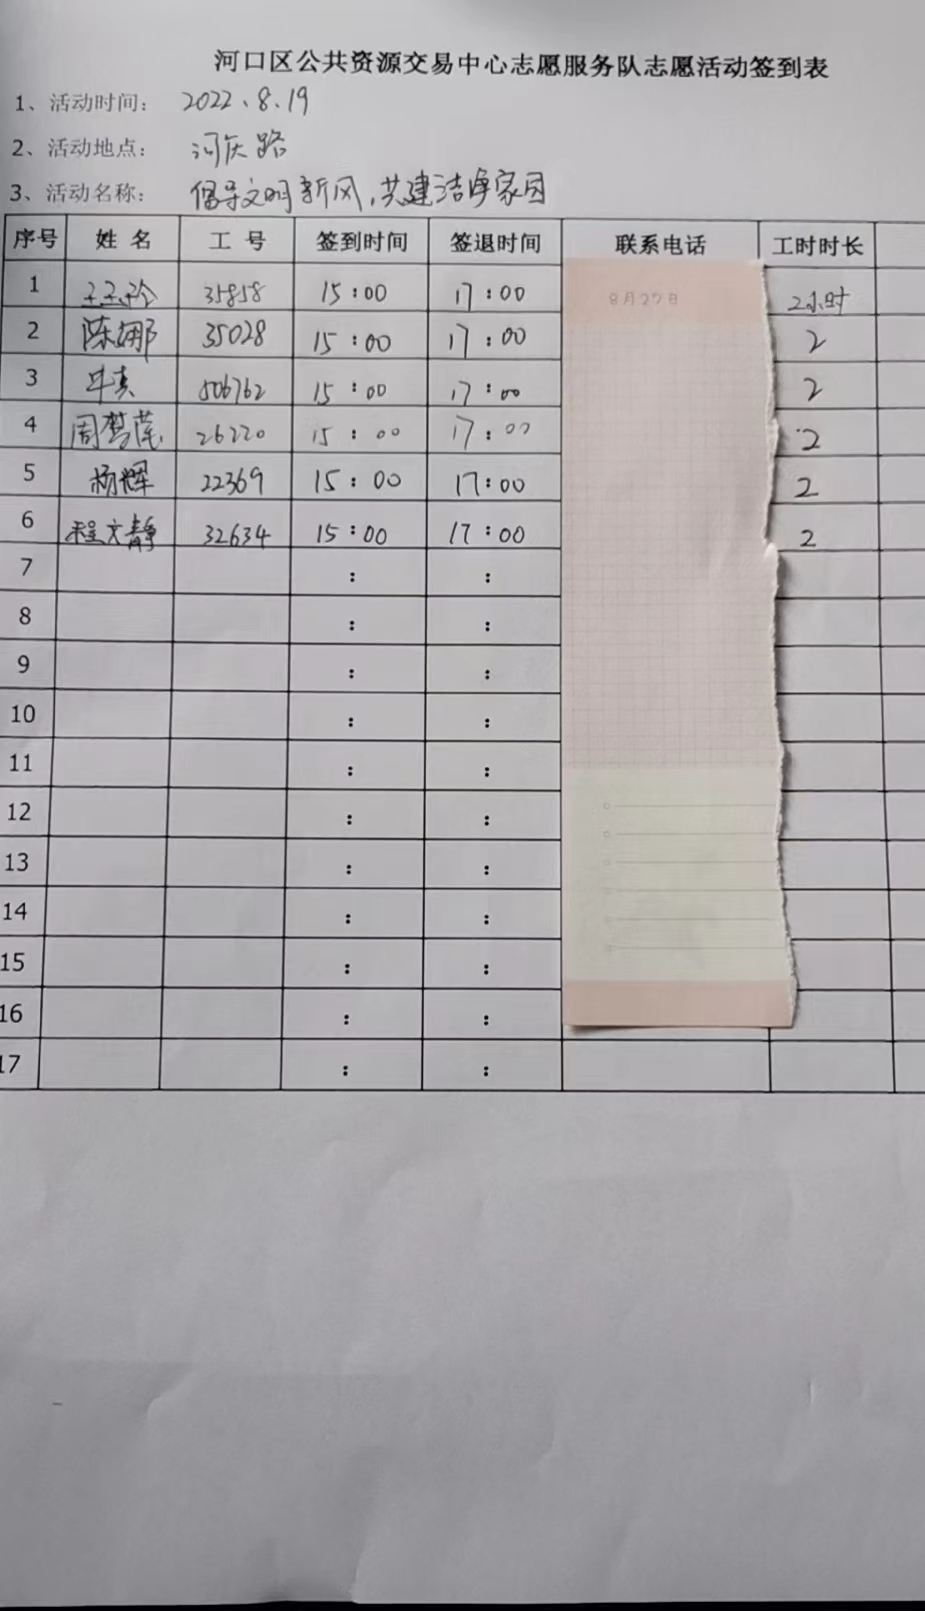 河口区公共资源交易中心志愿服务队志愿活动签到表
1、活动时间: 2022、8、19
2、活动地点: 河庆路
3、活动名称: 倡导文明新风,共建洁净家园
序号 姓 名 工 号 签到时间 签退时间 联系电话 工时时长
8月27日
1 35858 15:00 17:00 2小时
2 陈娜 35028 15:00 17:00 2
3 牛真 806762 15:00 17:00 2
4 周梦莲 26220 15:00 17:00 2
5 杨辉 22369 15:00 17:00 2
6 程文静 32634 15:00 17:00 2
7 : :
8 : :
9 : :
10 : :
11 : :
12 : :
13 : :
14 : :
15 : :
16 : :
17 : :